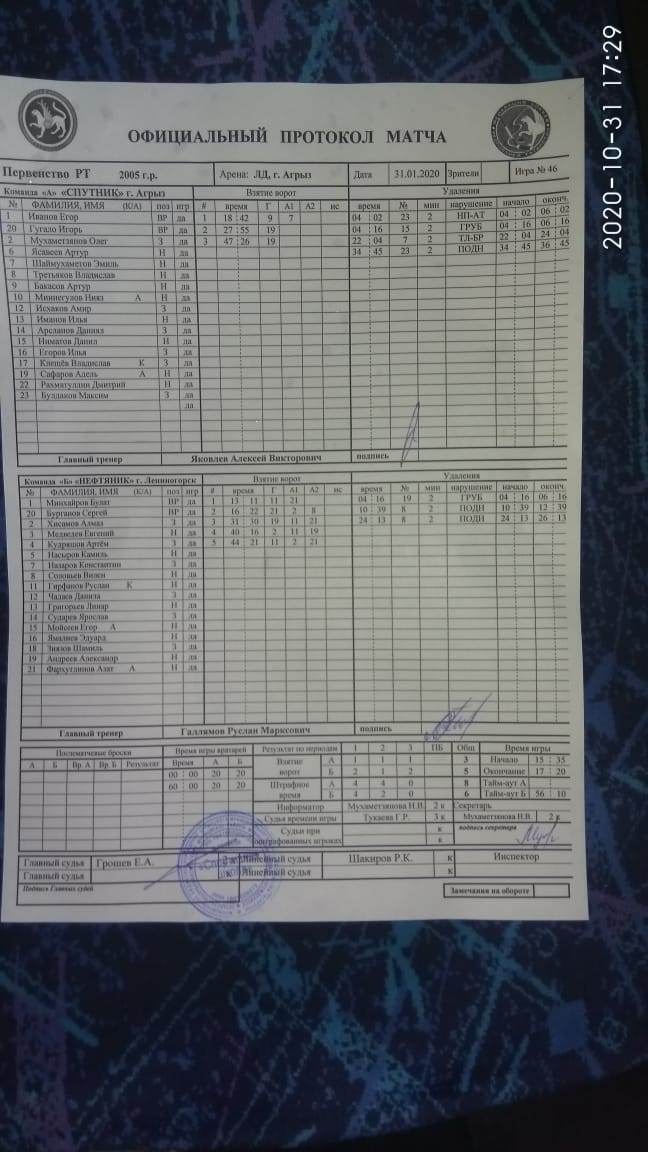 2020-10-31 17:29
ОФИЦИАЛЬНЫЙ ПРОТОКОЛ МАТЧА
Первенство РТ 2005 г.р. Арена: ЛД, г. Агрыз Дата 31.01.2020 Зрители Игра № 46
Команда «А» «СПУТНИК» г. Агрыз Взятие ворот Удаления
№ ФАМИЛИЯ, ИМЯ (К/А) поз игр # время Г А1 А2 ис время № мин нарушение начало оконч.
1 Иванов Егор ВР да 1 18 : 42 9 7 04 : 02 23 2 НП-АТ 04 : 02 06 : 02
20 Гугало Игорь ВР да 2 27 : 55 19 04 : 16 15 2 ГРУБ 04 : 16 06 : 16
2 Мухаметзянов Олег З да 3 47 : 26 19 22 : 04 7 2 ТЛ-БР 22 : 04 24 : 04
6 Ясавеев Артур Н да 34 : 45 23 2 ПОДН 34 : 45 36 : 45
7 Шаймухаметов Эмиль Н да
8 Третьяков Владислав Н да
9 Бакасов Артур Н да
10 Миннегулов Нияз А Н да
12 Исхаков Амир З да
13 Иманов Илья Н да
14 Арсланов Данияз З да
15 Ниматов Данил Н да
16 Егоров Илья З да
17 Клещёв Владислав К З да
19 Сафаров Адель А Н да
22 Рахматуллин Дмитрий Н да
23 Булдаков Максим З да
да
Главный тренер Яковлев Алексей Викторович подпись
Команда «Б» «НЕФТЯНИК» г. Лениногорск Взятие ворот Удаления
№ ФАМИЛИЯ, ИМЯ (К/А) поз игр # время Г А1 А2 ис время № мин нарушение начало оконч.
1 Минхайров Булат ВР да 1 13 : 11 11 21 04 : 16 19 2 ГРУБ 04 : 16 06 : 16
20 Бурганов Сергей ВР да 2 16 : 22 21 2 8 10 : 39 8 2 ПОДН 10 : 39 12 : 39
2 Хисамов Алмаз З да 3 31 : 30 19 11 21 24 : 13 8 2 ПОДН 24 : 13 26 : 13
3 Медведев Евгений Н да 4 40 : 16 2 11 19
4 Кудряшов Артём З да 5 44 : 21 11 2 21
5 Насыров Камиль Н да
7 Назаров Константин З да
8 Соловьев Вилен Н да
11 Гарфанов Руслан К Н да
12 Чадаев Данила З да
13 Григорьев Линар Н да
14 Сударев Ярослав З да
15 Мойсеев Егор А Н да
16 Ямалиев Эдуард Н да
18 Зиязов Шамиль З да
19 Андреев Александр Н да
21 Фархутдинов Азат А Н да
Главный тренер Галлямов Руслан Марксович подпись
Послематчевые броски Время игры вратарей Результат по периодам 1 2 3 ПБ Общ Время игры
А Б Вр. А Вр. Б Результат Время А Б Взятие ворот А 1 1 1 3 Начало 15 : 35
00 : 00 20 20 Б 2 1 2 5 Окончание 17 : 20
60 : 00 20 20 Штрафное время А 4 4 0 8 Тайм-аут А
Б 4 2 0 6 Тайм-аут Б 56 : 10
Информатор Мухаметзянова Н.В. 2 к Секретарь
Судья времени игры Тукаева Г.Р. 3 к Мухаметзянова Н.В. 2 к
Судьи при оштрафованных игроках к подпись секретаря
к
Главный судья Грошев Е.А. 2 к Линейный судья Шакиров Р.К. к Инспектор
Главный судья к Линейный судья к
Подпись Главных судей Замечания на обороте